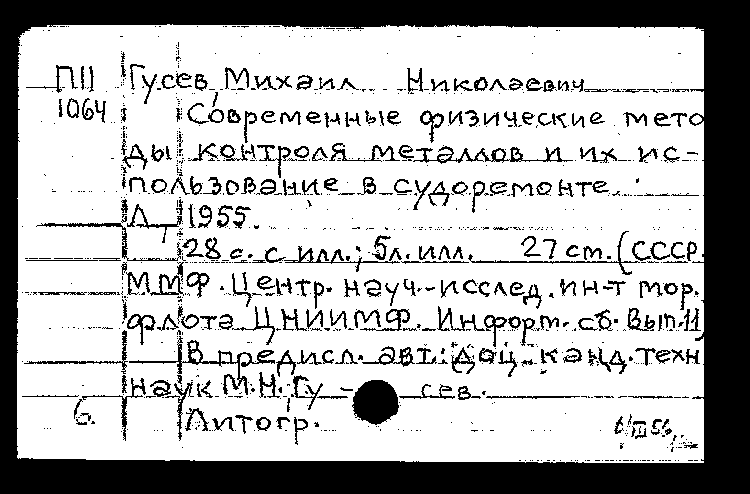 ПII Гусев, Михаил Николаевич
1064 Современные физические мето
ды контроля металлов и их ис-
пользование в судоремонте.
Л, 1955.
28 с. с илл.; 5л. илл. 27 ст. (СССР.
ММФ. Центр. науч.-исслед. ин-т мор.
флота ЦНИИМФ. Информ. сб. Вып.11)
В предисл. авт.: доц. канд. техн
наук М.Н. Гу - сев.
б. Литогр. 6/III 56